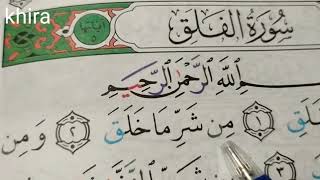 khira
سُورَةُ الفَلَقِ
ـمِ اللَّهِ الرَّحْمَٰنِ الرَّحِيمِ
ـلَقِ ١ مِن شَرِّ مَا خَلَقَ ٢ وَمِن
٣